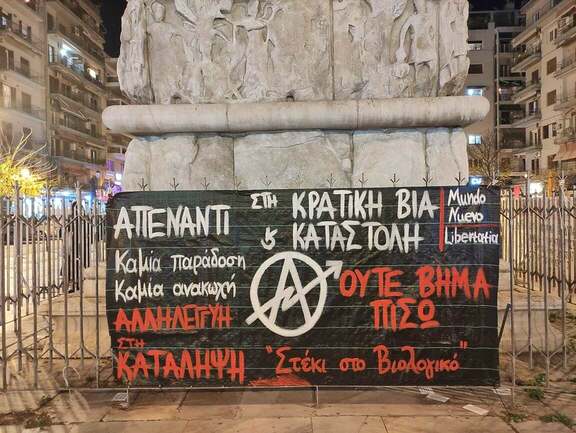 ΑΠΕΝΑΝΤΙ ΣΤΗ ΚΡΑΤΙΚΗ ΒΙΑ
& ΚΑΤΑΣΤΟΛΗ
Mundo
Nuevo
Libertatia
Καμία παράδοση
Καμια ανακωχή
ΑΛΛΗΛΕΓΓΥΗ
ΣΤΗ
ΚΑΤΑΛΗΨΗ "Στέκι στο Βιολογικό"
ΟΥΤΕ ΒΗΜΑ
ΠΙΣΩ